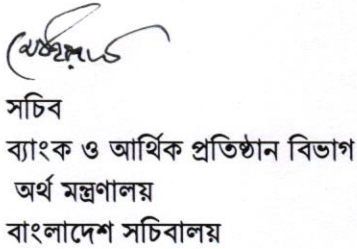 সচিব
ব্যাংক ও আর্থিক প্রতিষ্ঠান বিভাগ
অর্থ মন্ত্রণালয়
বাংলাদেশ সচিবালয়